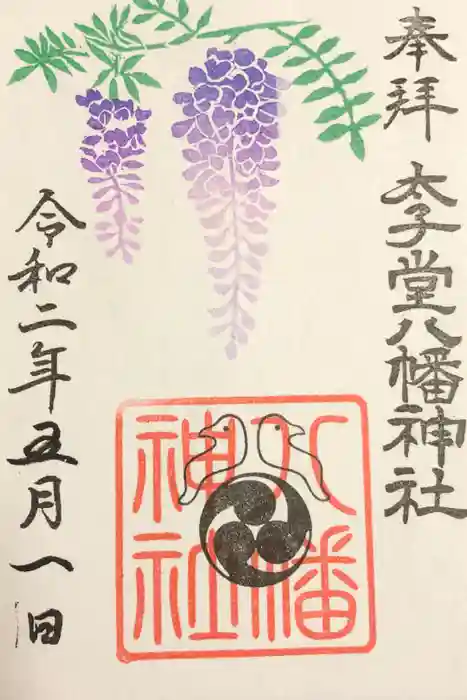 奉拝
太子堂八幡神社
八幡
神社
令和二年五月一日